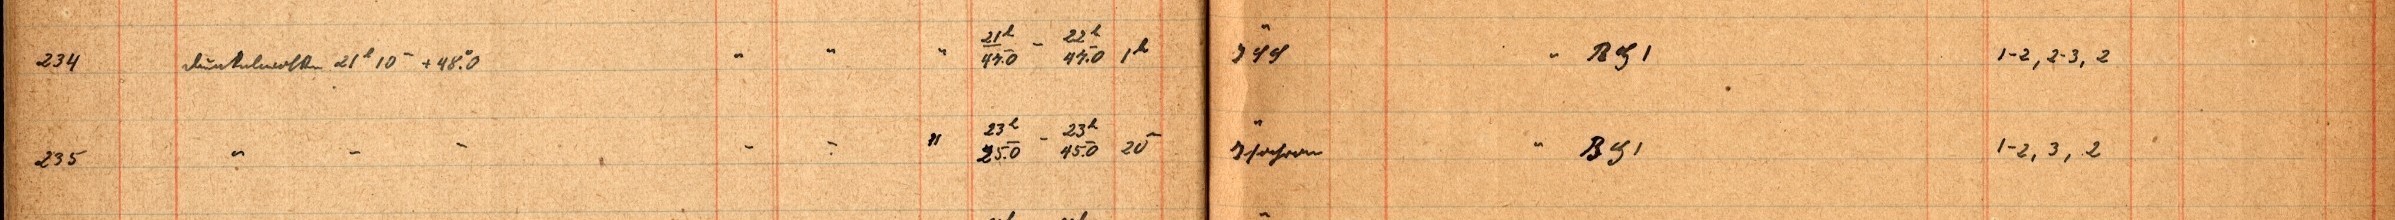 234 Dunkelwolken 21h 10m +48.°0 " " " 21h 47.m0 - 22h 47.m0 1h " " BG1 1-2, 2-3, 2
235 " " " " " " 23h 25.m0 - 23h 45.m0 20m " Isochrom " BG1 1-2, 3, 2